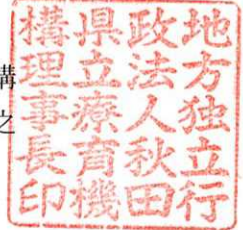 地方独立行
政法人秋田
県立療育機
構理事長印
構
之